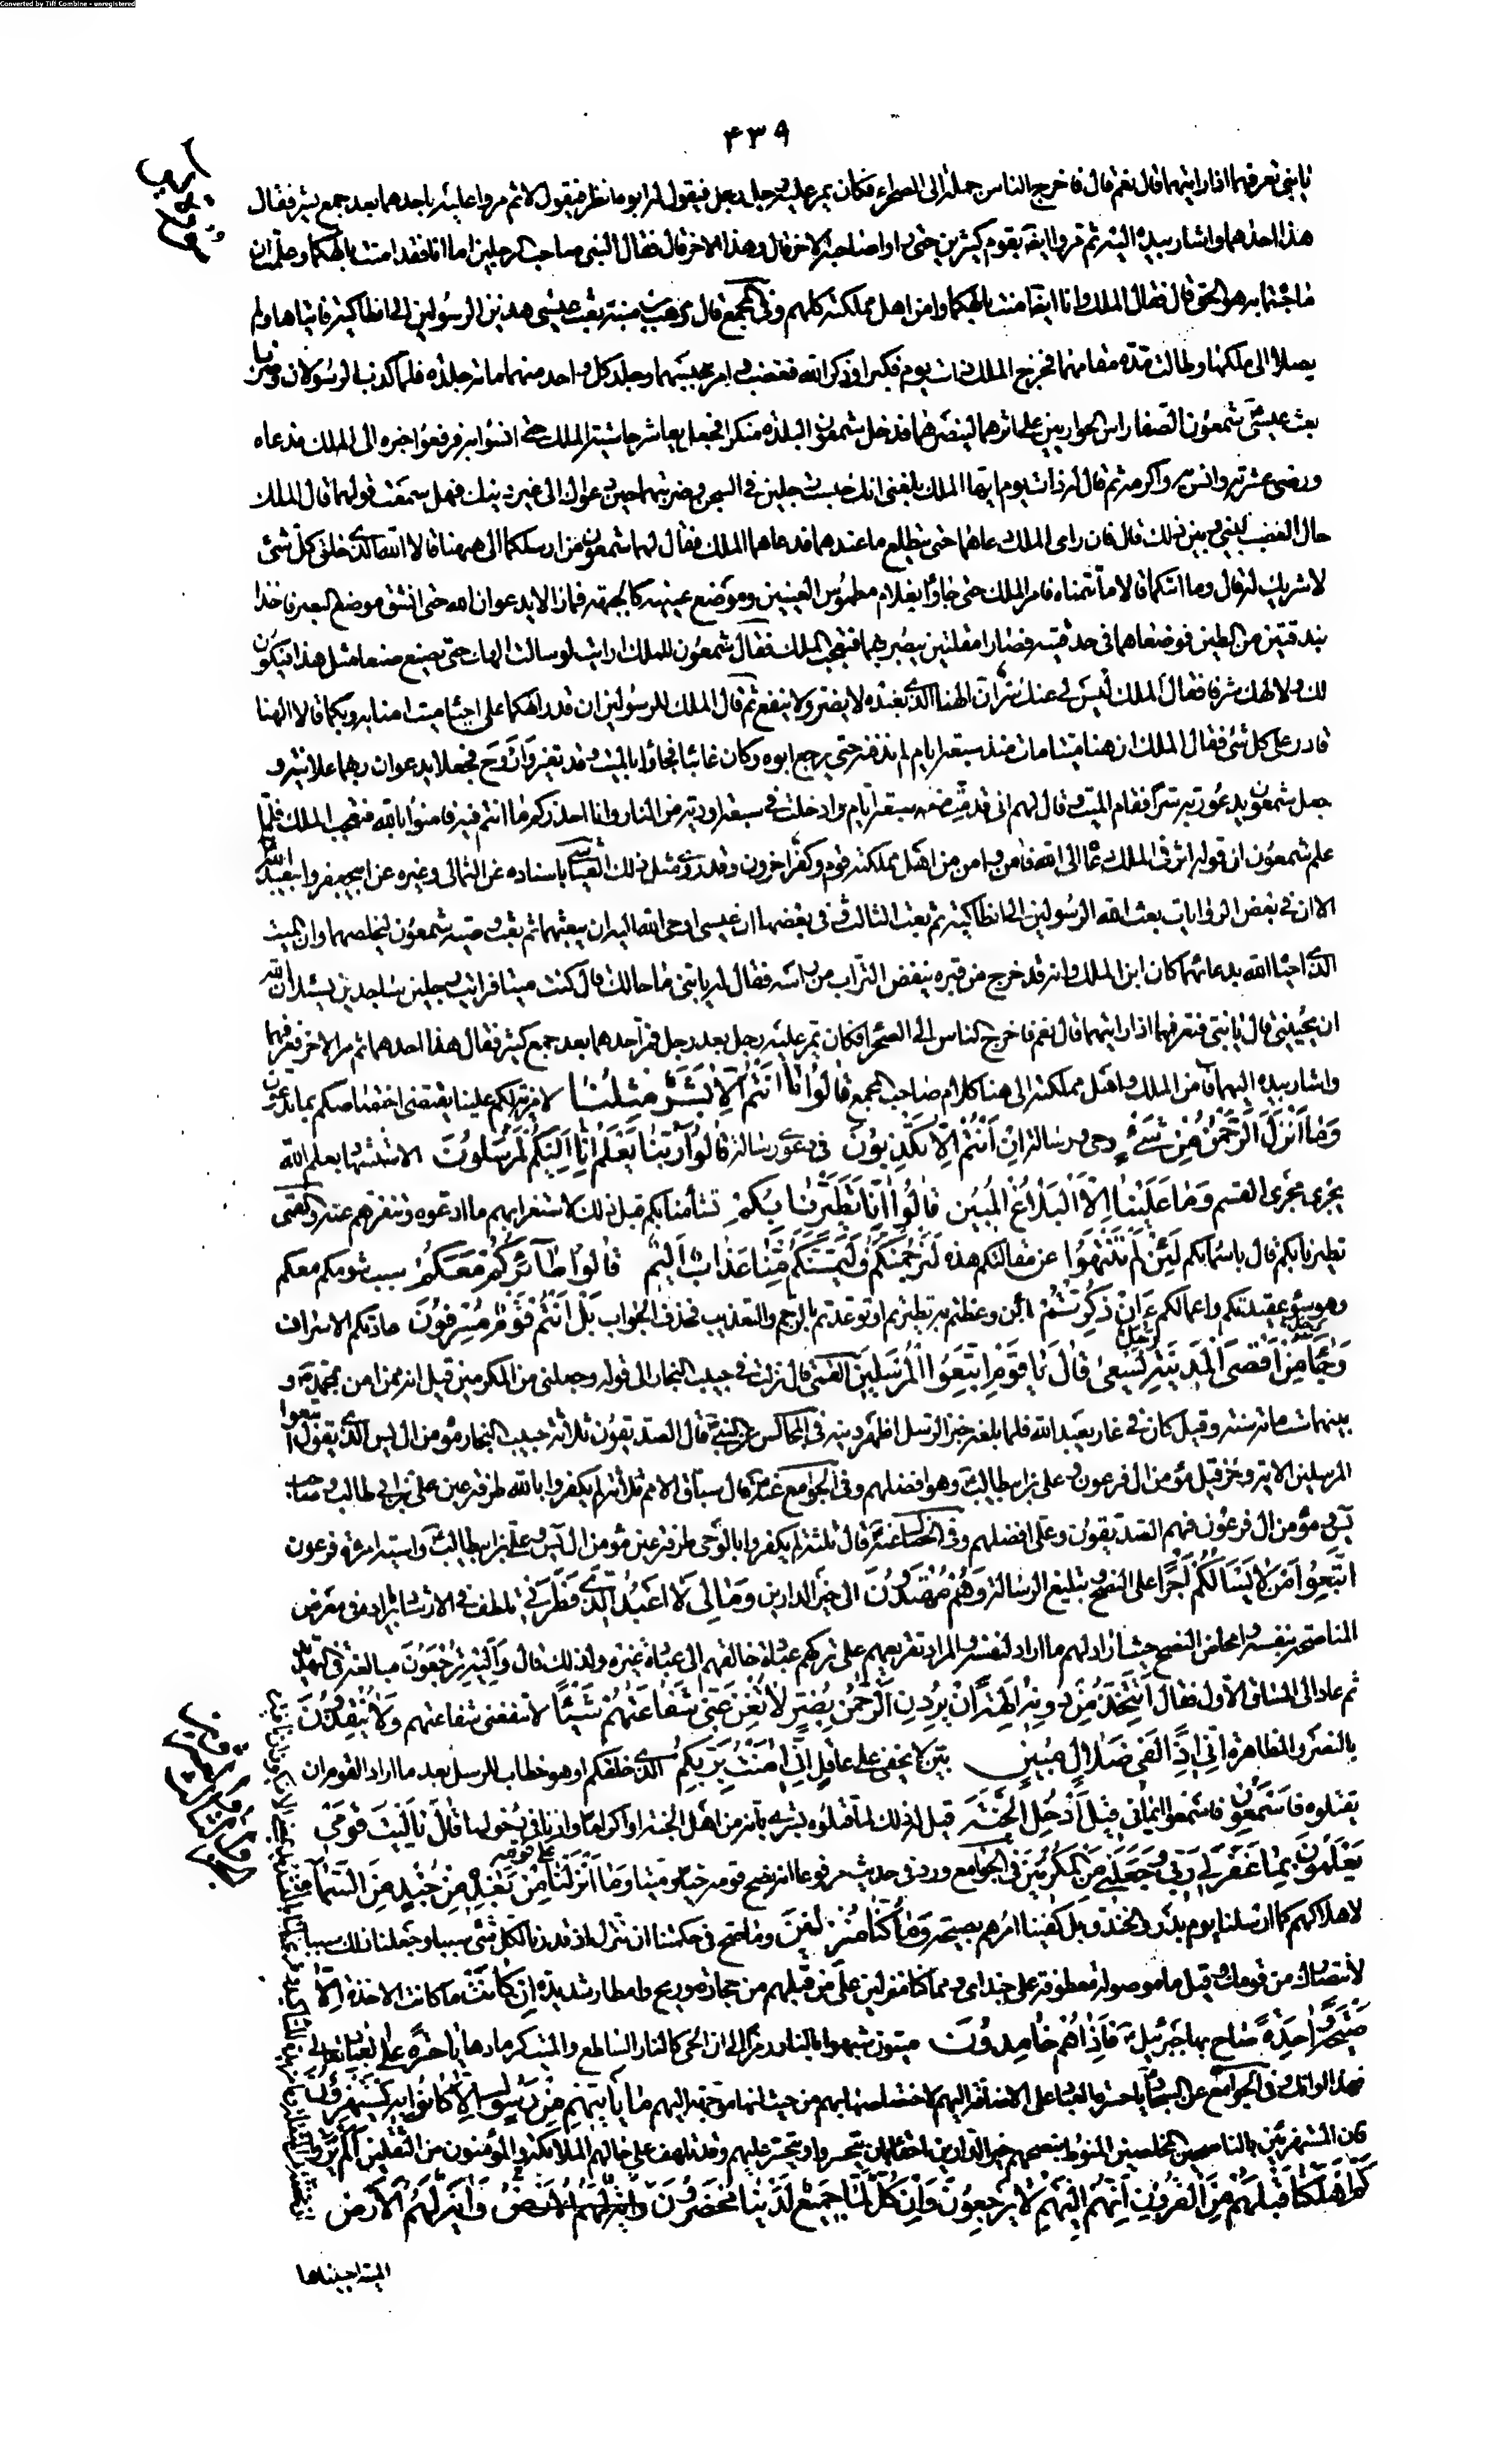 Converted by Tiff Combine - unregistered
۴۳۹
يا بنى تعرفهما اذا رايتهما قال نعم قال فاخرج الناس جملة الى الصحراء فكان يمر عليه رجل رجل فيقول له ابوه انظر فيقول لا ثم مروا عليه باحدهما بعد جمع كثير فقال
هذا احدهما واشار بيده اليه ثم مروا ايضا بقوم كثيرين حتى راى صاحبه الاخر فقال وهذا الاخر قال فقال النبى صاحب الرجلين اما انا فقد امنت بالهكما وعلمت ان
ما جئتما به هو الحق قال فقال الملك وانا ايضا امنت بالهكما وامن اهل مملكته كلهم وفى المجمع قال وهب بن منبه بعث عيسى هذين الرسولين الى انطاكية فاتياها ولم
يصلا الى ملكها وطالت مدة مقامهما فخرج الملك ذات يوم فكبرا وذكرا الله فغضب وامر بحبسهما وجلد كل واحد منهما مائة جلدة فلما كذب الرسولان وضربا
بعث عيسى شمعون الصفا راس الحواريين على اثرهما لينصرهما فدخل شمعون البلدة منكرا فجعل يعاشر حاشية الملك حتى انسوا به فرفعوا خبره الى الملك فدعاه
ورضى عشرته وانس به واكرمه ثم قال له ذات يوم ايها الملك بلغنى انك حبست رجلين فى السجن وضربتهما حين دعواك الى غير دينك فهل سمعت قولهما قال الملك
حال الغضب بينى وبين ذلك قال فان راى الملك دعاهما حتى نطلع ما عندهما فدعاهما الملك فقال لهما شمعون من ارسلكما الى ههنا قالا الله الذى خلق كل شئ
لا شريك له قال وما ايتكما قالا ما تتمناه فامر الملك حتى جاؤا بغلام مطموس العينين وموضع عينيه كالجبهة فما زالا يدعوان الله حتى انشق موضع البصر فاخذا
بندقتين من الطين فوضعاهما فى حدقتيه فصارا مقلتين يبصر بهما فتعجب الملك فقال شمعون للملك ارايت لو سالت الهك حتى يصنع صنعا مثل هذا فيكون
لك ولالهك شرفا فقال الملك ليس لى عنك سر ان الهنا الذى نعبده لا يضر ولا ينفع ثم قال الملك للرسولين ان قدر الهكما على احياء ميت امنا به وبكما قالا الهنا
قادر على كل شئ فقال الملك ان هنا ميتا مات منذ سبعة ايام لم ندفنه حتى يرجع ابوه وكان غائبا فجاؤا بالميت وقد تغير واروح فجعلا يدعوان ربهما علانية و
جعل شمعون يدعو ربه سرا فقام الميت وقال لهم انى قد مت منذ سبعة ايام وادخلت فى سبعة اودية من النار وانا احذركم ما انتم فيه فامنوا بالله فتعجب الملك فلما
علم شمعون ان قوله اثر فى الملك دعاه الى الله فامن وامن من اهل مملكته قوم وكفر اخرون وقد روى مثل ذلك العياشى باسناده عن الثمالى وغيره عن ابيجعفر وابيعبد الله
الا ان فى بعض الروايات بعث الله الرسولين الى انطاكية ثم بعث الثالث وفى بعضها ان عيسى اوحى الله اليه ان يبعثهما ثم بعث وصيه شمعون ليخلصهما وان الميت
الذى احياه الله بدعائهما كان ابن الملك وانه قد خرج من قبره ينفض التراب من راسه فقال له يا بنى ما حالك قال كنت ميتا فرايت رجلين ساجدين يسئلان الله
ان يحيينى قال يا بنى فتعرفهما اذا رايتهما قال نعم فاخرج الناس الى الصحراء فكان يمر عليه رجل بعد رجل فمر احدهما بعد جمع كثير فقال هذا احدهما ثم مر الاخر فعرفهما
واشار بيده اليهما فامن الملك واهل مملكته الى هنا كلام صاحب المجمع قالوا ما انتم الا بشر مثلنا لا مزية لكم علينا يقتضى اختصاصكم بما تدعون
وما انزل الرحمن من شئ وحى ورسالة ان انتم الا تكذبون فى دعوى رسالة قالوا ربنا يعلم انا اليكم لمرسلون الاستشهاد بعلم الله
يجرى مجرى القسم وما علينا الا البلاغ المبين قالوا انا تطيرنا بكم تشأمنا بكم قيل ذلك لاستغرابهم ما ادعوه وتنفرهم عنه والقمى
تطيرنا بكم قال باسمائكم لئن لم تنتهوا عن مقالتكم هذه لنرجمنكم وليمسنكم منا عذاب اليم قالوا طائركم معكم سبب شومكم معكم
وهو سوء عقيدتكم واعمالكم ءان ذكرتم ائن وعظتم به تطيرتم او توعدتم بالرجم والتعذيب فحذف الجواب بل انتم قوم مسرفون عادتكم الاسراف
وجاء من اقصى المدينة رجل يسعى قال يا قوم اتبعوا المرسلين القمى قال نزلت فى حبيب النجار الى قوله وجعلنى من المكرمين قيل انه ممن امن بمحمد و
بينهما ستمائة سنة وقيل كان فى غار يعبد الله فلما بلغه خبر الرسل اظهر دينه فى المجالس عن النبى قال الصديقون ثلاثة حبيب النجار مؤمن ال يس الذى يقول اتبعوا
المرسلين الاية وحزقيل مؤمن ال فرعون وعلى بن ابيطالب وهو افضلهم وفى الجوامع عنه قال سباق الامم ثلاثة لم يكفروا بالله طرفة عين على بن ابى طالب وصاحب
يس ومؤمن ال فرعون فهم الصديقون وعلى افضلهم وفى الخصال عنه قال ثلثة لم يكفروا بالوحى طرفة عين مؤمن ال يس وعلى بن ابيطالب واسية امرئة فرعون
اتبعوا من لا يسألكم اجرا على النصح وتبليغ الرسالة وهم مهتدون الى خير الدارين وما لى لا اعبد الذى فطرنى تلطف فى الارشاد بايراده فى معرض
المناصحة بنفسه وامحاض النصح حيث اراد لهم ما اراد لنفسه والمراد تقريعهم على تركهم عبادة خالقهم الى عبادة غيره ولذلك قال واليه ترجعون مبالغة فى التهديد
ثم عاد الى المساق الاول فقال ءاتخذ من دونه الهة ان يردن الرحمن بضر لا تغن عنى شفاعتهم شيئا لا تنفعنى شفاعتهم ولا ينقذون
بالنصرة والمظاهرة انى اذا لفى ضلال مبين بين لا يخفى على عاقل انى امنت بربكم الذى خلقكم او هو خطاب للرسل بعد ما اراد القوم ان
يقتلوه فاسمعون فاسمعوا ايمانى قيل ادخل الجنة قيل له ذلك لما قتلوه بشرى بانه من اهل الجنة او اكراما واذنا فى دخولها قال يا ليت قومى
يعلمون بما غفر لى ربى وجعلنى من المكرمين فى الجوامع ورد فى حديث مرفوعا انه نصح قومه حيا وميتا وما انزلنا على قومه من بعده من جند من السماء
لاهلاكهم كما ارسلنا يوم بدر والخندق بل كفينا امرهم بصيحة وما كنا منزلين وما صح فى حكمتنا ان ننزل اذ قدرنا لكل شئ سببا وجعلنا ذلك سببا
لانتصارك من قومك وقيل ما موصولة معطوفة على جند اى ومما كنا منزلين على من قبلهم من حجارة وريح وامطار شديدة ان كانت ما كانت الاخذة الا
صيحة واحدة صاح بها جبرئيل فاذا هم خامدون ميتون شبهوا بالنار رمزا الى ان الحى كالنار الساطع والميت كرمادها يا حسرة على العباد تعالى
فهذا اوانك وفى الجوامع عن السجاد يا حسرة العباد على الاضافة اليهم لاختصاصها بهم من حيث انها موجهة اليهم ما ياتيهم من رسول الا كانوا به يستهزؤن
فان المستهزئين بالناصحين المخلصين المنوط بنصحهم خير الدارين احقاء بان يتحسروا او يتحسر عليهم وقد تلهف على حالهم الملائكة والمؤمنون من الثقلين الم يروا
كم اهلكنا قبلهم من القرون انهم اليهم لا يرجعون وان كل لما جميع لدينا محضرون واية لهم الارض
الميتة احييناها